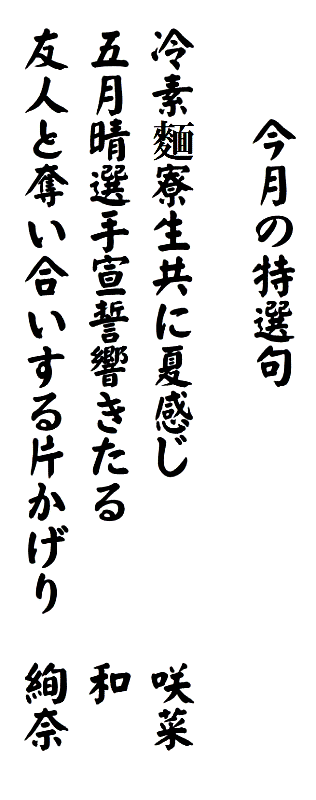 今月の特選句
冷素麺寮生共に夏感じ　咲菜
五月晴選手宣誓響きたる　和
友人と奪い合いする片かげり　絢奈